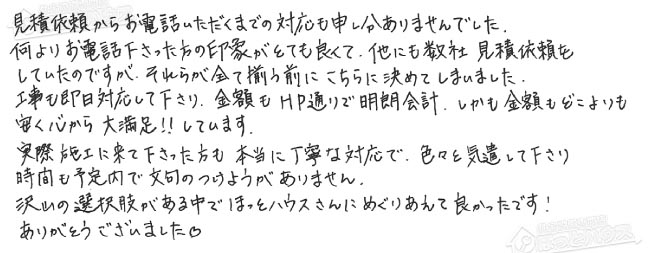 見積依頼からお電話いただくまでの対応も申し分ありませんでした.
何よりお電話下さった方の印象がとても良くて、他にも数社 見積依頼を
していたのですが、それらが全て揃う前にこちらに決めてしまいました.
工事も即日対応して下さり、金額も HP通りで明朗会計、しかも金額もどこよりも
安く心から 大満足!! しています.
実際施工に来て下さった方も 本当に丁寧な対応で、色々と気遣して下さり
時間も予定内で文句のつけようがありません.
沢山の選択肢がある中でほっとハウスさんにめぐりあえて良かったです!
ありがとうございました♡